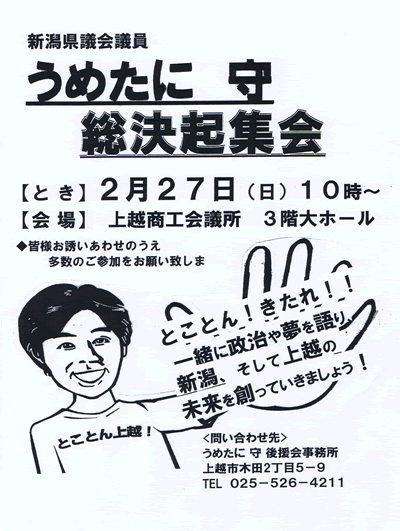 新潟県議会議員
うめたに 守
総決起集会
【と き】 2月27日（日）10時～
【会 場】 上越商工会議所 3階大ホール
◆皆様お誘いあわせのうえ
多数のご参加をお願い致しま
とことん！きたれ！！
一緒に政治や夢を語り、
新潟、そして上越の
未来を創っていきましょう！
とことん上越！
<問い合わせ先>
うめたに 守 後援会事務所
上越市木田2丁目5－9
TEL 025-526-4211